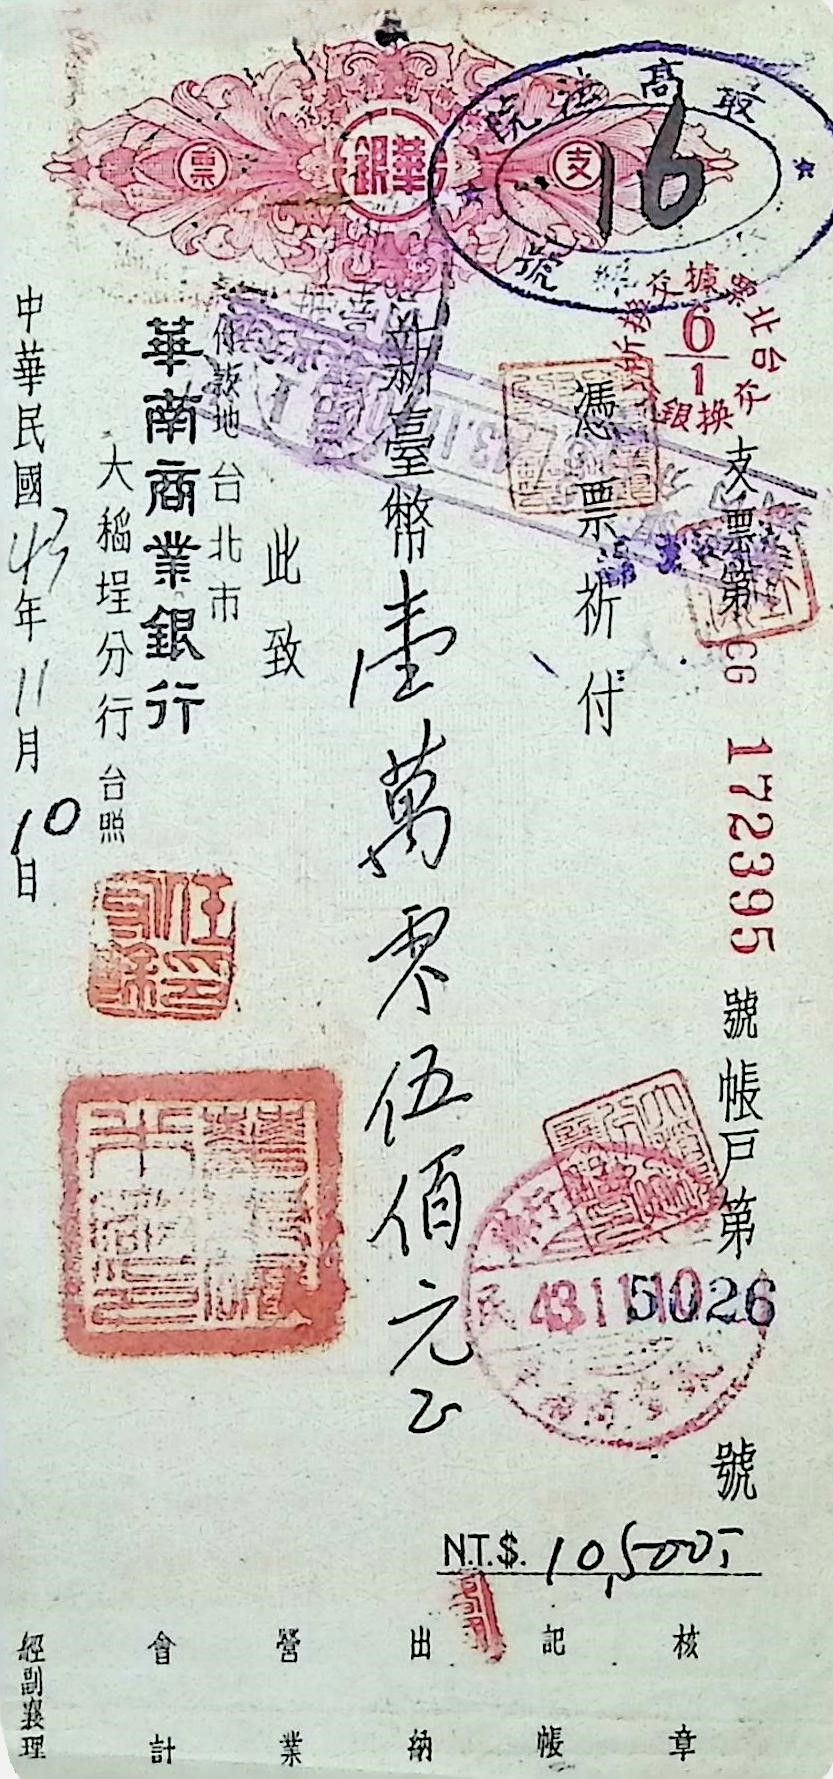 支 華銀 票
最高法院
16
號
台北票據交換所
6/1
交換銀
支票第CG 172395 號帳戶第 5026 號
憑票祈付
新臺幣壹萬零伍佰元正
NT.$. 10,500元
此致
付款地台北市
華南商業銀行
大稻埕分行台照
中華民國43年11月10日
民 43.11.10
核章
記帳
出納
營業
會計
經副襄理